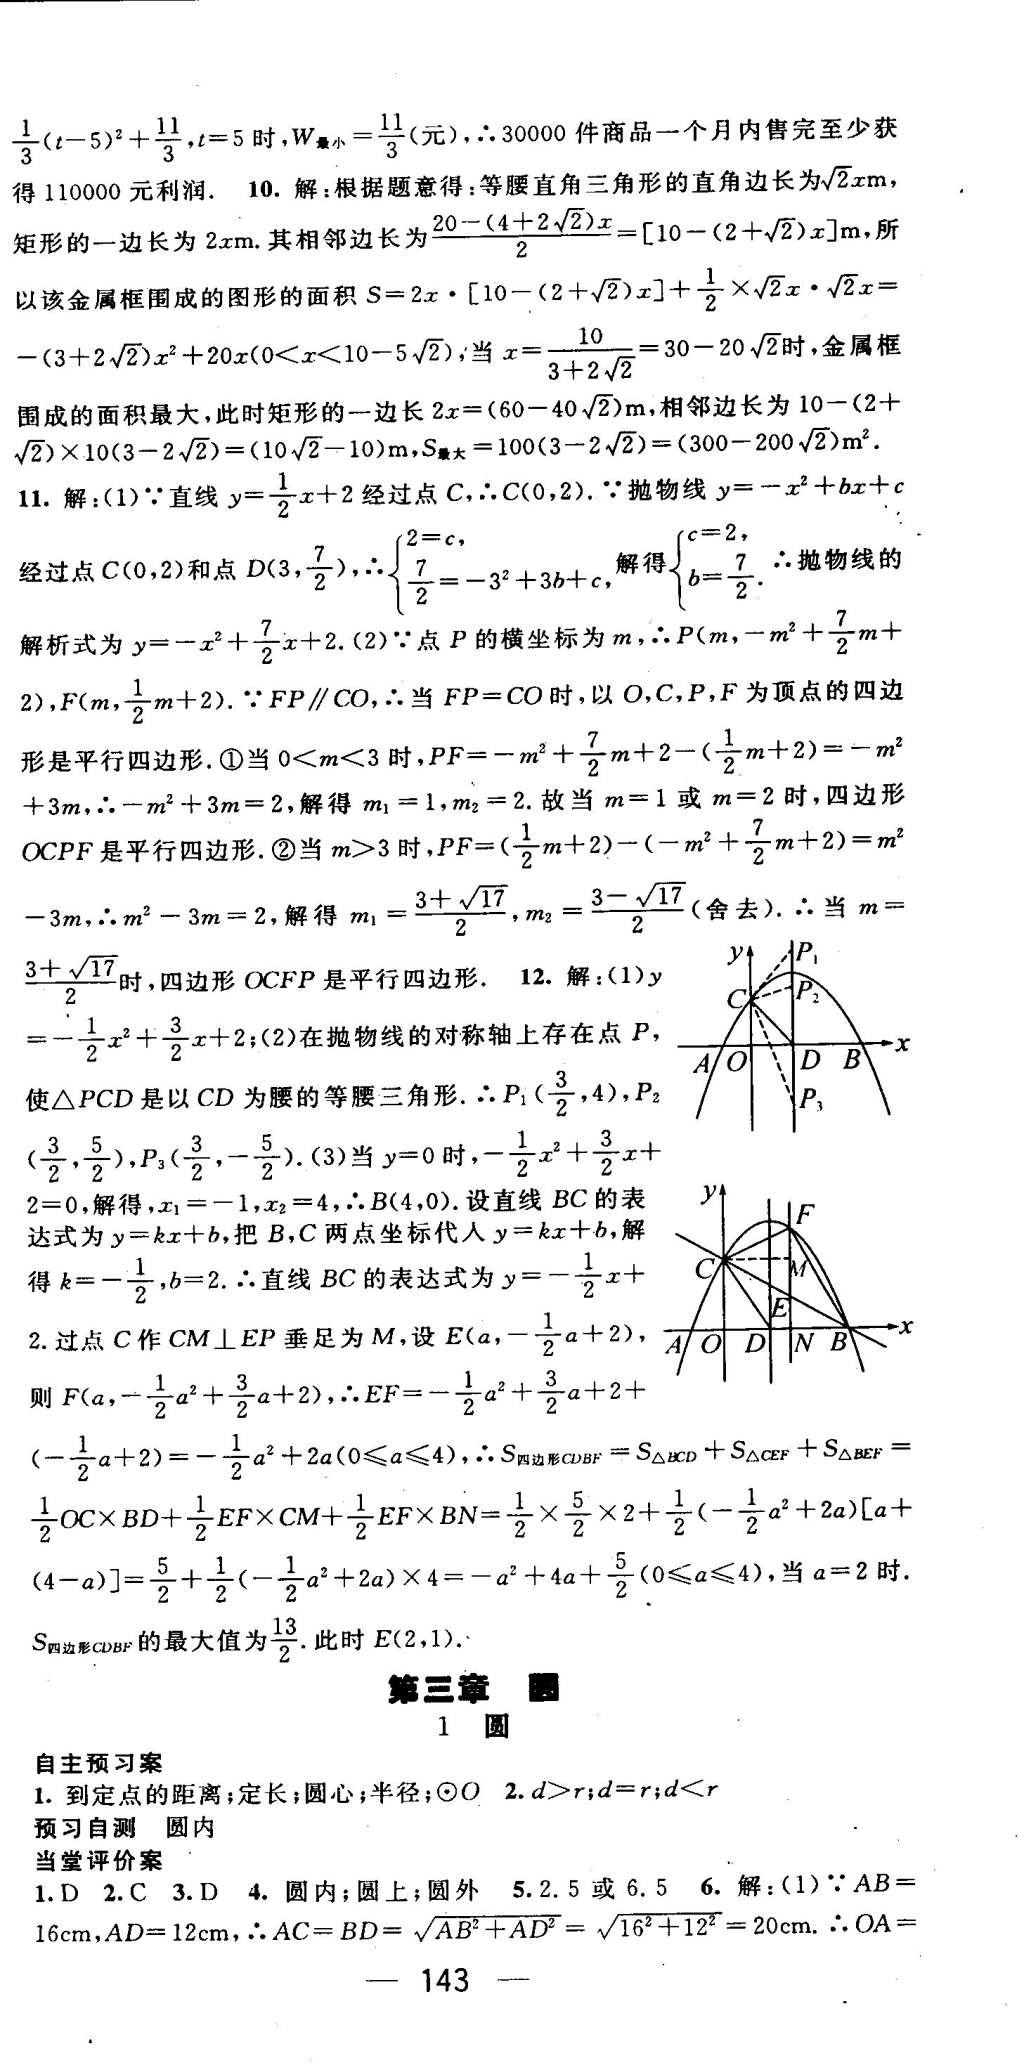 1/3(t－5)²＋11/3,t＝5 时,W最小＝11/3(元),∴30000 件商品一个月内售完至少获
得 110000 元利润. 10. 解:根据题意得:等腰直角三角形的直角边长为√2xm,
矩形的一边长为 2xm. 其相邻边长为(20－(4＋2√2)x)/2＝[10－(2＋√2)x]m,所
以该金属框围成的图形的面积 S＝2x·[10－(2＋√2)x]＋1/2×√2x·√2x＝
－(3＋2√2)x²＋20x(0<x<10－5√2),当 x＝10/(3＋2√2)＝30－20√2时,金属框
围成的面积最大,此时矩形的一边长 2x＝(60－40√2)m,相邻边长为 10－(2＋
√2)×10(3－2√2)＝(10√2－10)m,S最大＝100(3－2√2)＝(300－200√2)m².
11. 解:(1)∵直线 y＝1/2x＋2 经过点 C,∴C(0,2). ∵抛物线 y＝－x²＋bx＋c
经过点 C(0,2)和点 D(3,7/2),∴{2＝c, 7/2＝－3²＋3b＋c, 解得{c＝2, b＝7/2. ∴抛物线的
解析式为 y＝－x²＋7/2x＋2. (2)∵点 P 的横坐标为 m,∴P(m,－m²＋7/2m＋
2),F(m,1/2m＋2). ∵FP∥CO,∴当 FP＝CO 时,以 O,C,P,F 为顶点的四边
形是平行四边形. ①当 0<m<3 时,PF＝－m²＋7/2m＋2－(1/2m＋2)＝－m²
＋3m,∴－m²＋3m＝2,解得 m₁＝1,m₂＝2. 故当 m＝1 或 m＝2 时,四边形
OCPF 是平行四边形. ②当 m>3 时,PF＝(1/2m＋2)－(－m²＋7/2m＋2)＝m²
－3m,∴m²－3m＝2,解得 m₁＝(3＋√17)/2,m₂＝(3－√17)/2(舍去). ∴当 m＝
(3＋√17)/2时,四边形 OCFP 是平行四边形. 12. 解:(1)y
＝－1/2x²＋3/2x＋2;(2)在抛物线的对称轴上存在点 P,
使△PCD 是以 CD 为腰的等腰三角形. ∴P₁(3/2,4),P₂
(3/2,5/2),P₃(3/2,－5/2). (3)当 y＝0 时,－1/2x²＋3/2x＋
2＝0,解得,x₁＝－1,x₂＝4,∴B(4,0). 设直线 BC 的表
达式为 y＝kx＋b,把 B,C 两点坐标代人 y＝kx＋b,解
得 k＝－1/2,b＝2. ∴直线 BC 的表达式为 y＝－1/2x＋
2. 过点 C 作 CM⊥EP 垂足为 M,设 E(a,－1/2a＋2),
则 F(a,－1/2a²＋3/2a＋2),∴EF＝－1/2a²＋3/2a＋2＋
(－1/2a＋2)＝－1/2a²＋2a(0≤a≤4),∴S四边形CDBF＝S△BCD＋S△CEF＋S△BEF＝
1/2OC×BD＋1/2EF×CM＋1/2EF×BN＝1/2×5/2×2＋1/2(－1/2a²＋2a)[a＋
(4－a)]＝5/2＋1/2(－1/2a²＋2a)×4＝－a²＋4a＋5/2(0≤a≤4),当 a＝2 时.
S四边形CDBF的最大值为13/2. 此时 E(2,1).
y P₁
C P₂
A O D B x
P₃
y F
C M
E
A O D N B x
第三章 圆
1 圆
自主预习案
1. 到定点的距离;定长;圆心;半径;⊙O 2. d>r;d＝r;d<r
预习自测 圆内
当堂评价案
1. D 2. C 3. D 4. 圆内;圆上;圆外 5. 2.5 或 6.5 6. 解:(1)∵AB＝
16cm,AD＝12cm,∴AC＝BD＝√(AB²＋AD²)＝√(16²＋12²)＝20cm. ∴OA＝
— 143 —